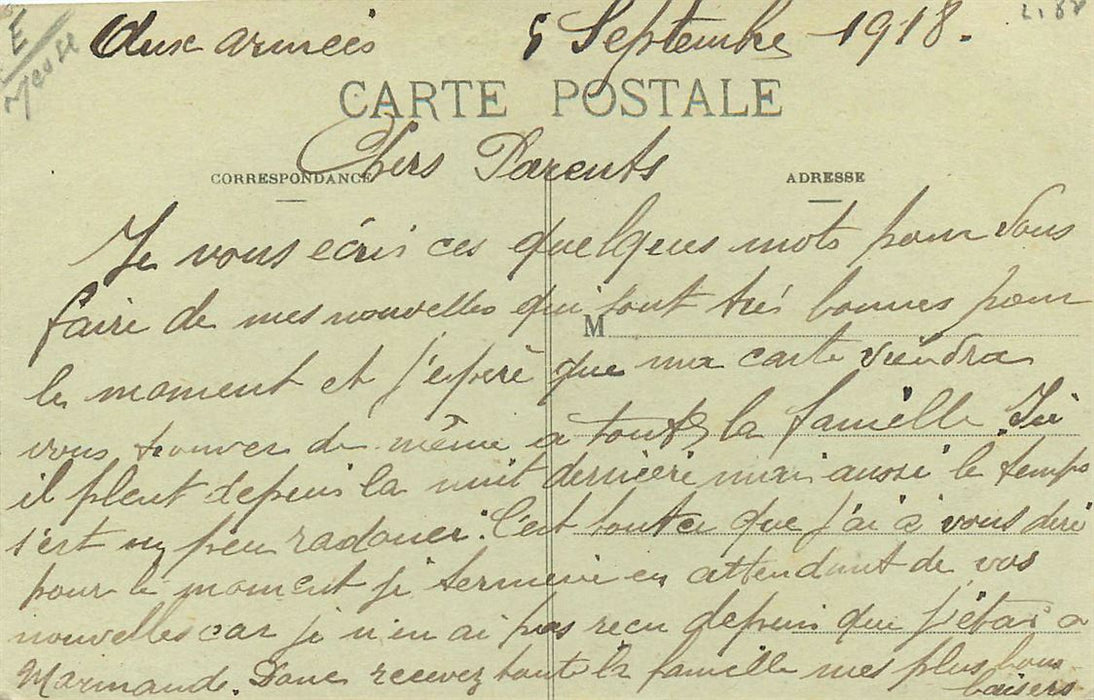 E
Meuse
L. 88
Aux armées 5 Septembre 1918.
CARTE POSTALE
Chers Parents
CORRESPONDANCE ADRESSE
Je vous écris ces quelques mots pour vous
faire de mes nouvelles qui sont très bonnes pour
M
le moment et j'espère que ma carte viendra
vous trouver de même a toute la famille. Ici
il pleut depuis la nuit dernière mais aussi le temps
s'est un peu radouci. C'est tout ce que j'ai à vous dire
pour le moment je termine en attendant de vos
nouvelles car je n'en ai pas reçu depuis que j'étais a
Marmande. Donc recevez toute la famille mes plus bons
baisers